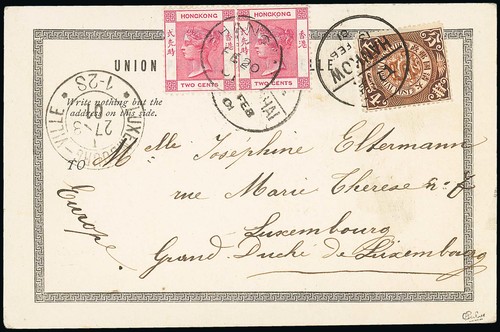 HONGKONG HONGKONG
TWO CENTS TWO CENTS
UNION
VILLE
HANKOW
FEB
FE 20
01
FEB
01
LUXEMBOURG-VILLE
1-2S
27-3
01
Write nothing but the
address on this side.
TO
Mlle Josephine Eltermann
rue Marie Therese n. 7
Luxembourg
Grand Duché de Luxembourg
Europe.